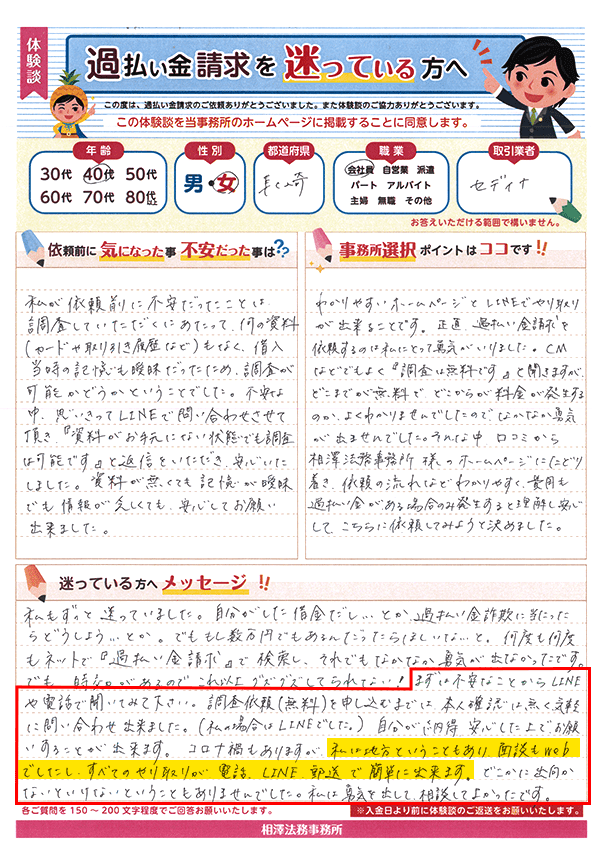 体験談
過払い金請求を迷っている方へ
この度は、過払い金請求のご依頼ありがとうございました。また体験談のご協力ありがとうございます。
この体験談を当事務所のホームページに掲載することに同意します。
年齢
30代 40代 50代
60代 70代 80代以上
性別
男・女
都道府県
長崎
職業
会社員 自営業 派遣
パート アルバイト
主婦 無職 その他
取引業者
セディナ
お答えいただける範囲で構いません。
依頼前に気になった事 不安だった事は??
私が依頼前に不安だったことは
調査していただくにあたって、何の資料
(カードや取り引き履歴など)もなく、借入
当時の記憶も曖昧だったため、調査が
可能かどうかということでした。不安な
中、思いきってLINEで問い合わせさせて
頂き『資料がお手元にない状態でも調査
は可能です』と返信をいただき、安心いた
しました。資料が無くても記憶が曖昧
でも情報が乏しくても、安心してお願い
出来ました。
事務所選択ポイントはココです!!
わかりやすいホームページとLINEでやり取り
が出来ることです。正直、過払い金請求を
依頼するのは私にとって勇気がいりました。CM
などでもよく『調査は無料です』と聞きますが、
どこまでが無料で、どこからが料金が発生する
のか、よくわかりませんでしたのでなかなか勇気
が出ませんでした。そんな中、口コミから
相澤法務事務所様のホームページにたどり
着き、依頼の流れなどわかりやすく、費用も
過払い金がある場合のみ発生すると理解し安心
して、こちらに依頼してみようと決めました。
迷っている方へメッセージ!!
私もずっと迷っていました。自分がした借金だし…とか、過払い金詐欺に当たった
らどうしよう…とか。でももし数万円でもあるんだったらほしいな…と。何度も何度
もネットで『過払い金請求』で検索し、それでもなかなか勇気が出なかったです。
でも、時効があるのでこれ以上グズグズしてられない!まずは不安なことからLINE
や電話で聞いてみて下さい。調査依頼(無料)を申し込むまでは、本人確認は無く気軽
に問い合わせ出来ました。(私の場合はLINEでした。)自分が納得、安心した上でお願
いすることが出来ます。コロナ禍もありますが、私は地方ということもあり、面談もWeb
でしたし、すべてのやり取りが電話、LINE、郵送で簡単に出来ます。どこかに出向か
ないといけないということもありませんでした。私は勇気を出して、相談してよかったです。
各ご質問を150～200文字程度でご回答お願いいたします。
※入金日より前に体験談のご返送をお願いいたします。
相澤法務事務所